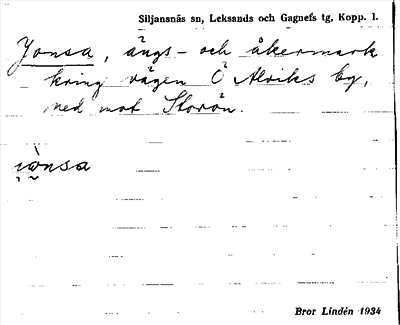 Siljansnäs sn, Leksands och Gagnefs tg, Kopp. l.
Jonsa, ängs- och åkermark
kring vägen Ö Alriks by,
ned mot Storön.
Bror Lindén 1934